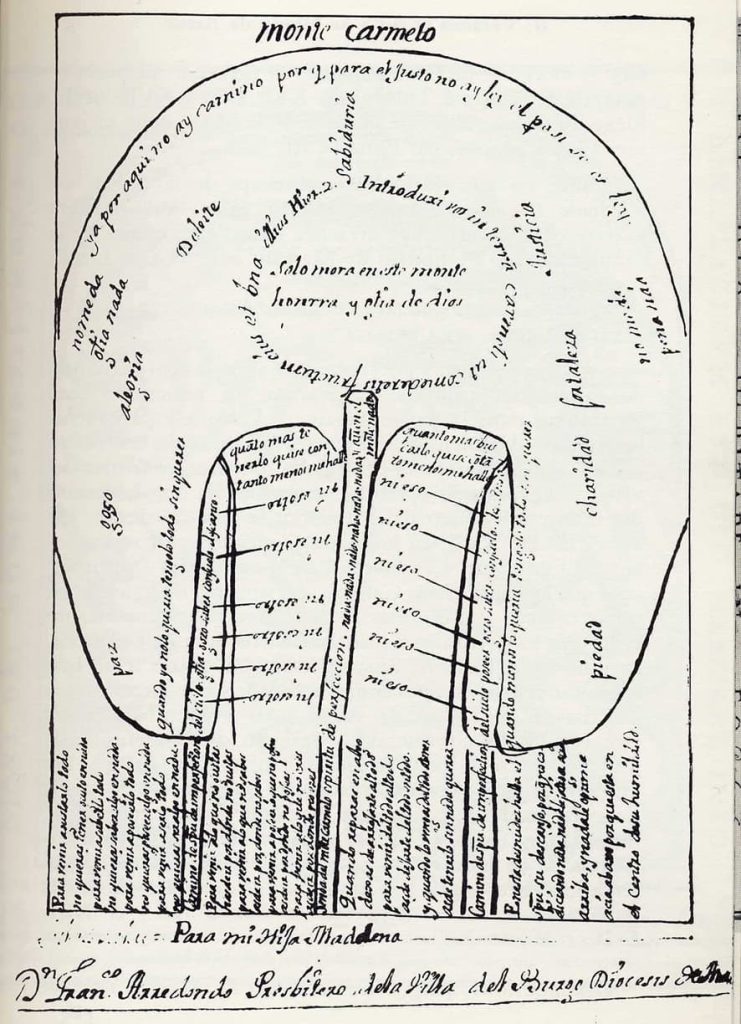 monte carmelo
ya por aqui no ay camino por q para el Justo no ay ley el para si se es ley
Sabiduria
Deleite
Justicia
Introduxi vos in terram carmeli ut comederetis fructum eius et bona illius Hier. 2.
Solo mora en este monte
honrra y gloria de dios
no me da
gloria nada
alegria
no me da
pena nada
fortaleza
charidad
piedad
gozo
paz
quanto mas te
nerlo quise con
tanto menos me halle
quanto mas bus
carlo quise
tanto menos me halle
ni esotro
ni esotro
ni esotro
ni esotro
ni esotro
ni esotro
ni eso
ni eso
ni eso
ni eso
ni eso
ni eso
quando ya no lo queria tengolo todo sin querer
quando menos lo queria tengolo todo sin querer
del cielo gloria gozo saber consuelo descanso
del suelo poseer gozo saber consuelo descanso
senda del monte carmelo espiritu de perfeccion nada nada nada nada nada nada y aun en el
monte nada
Para venir a gustarlo todo
no quieras tener gusto en nada
para venir a saberlo todo
no quieras saber algo en nada
para venir a poseerlo todo
no quieras poseer algo en nada
para venir a serlo todo
no quieras ser algo en nada
Para venir a lo que no gustas
has de ir por donde no gustas
para venir a lo que no sabes
has de ir por donde no sabes
para venir a poseer lo que no posees
has de ir por donde no posees
para venir a lo que no eres
has de ir por donde no eres
Quando reparas en algo
dexas de arrojarte al todo
para venir del todo al todo
as de dejarte del todo en todo
y quando lo vengas del todo a tener
as de tenerlo sin nada querer
En esta desnudez halla el
su descanso
el centro de su humildad.
Para mi Hija Madalena
Dn Franco. Arredondo Presbitero de la Villa del Burgo Diocesis de